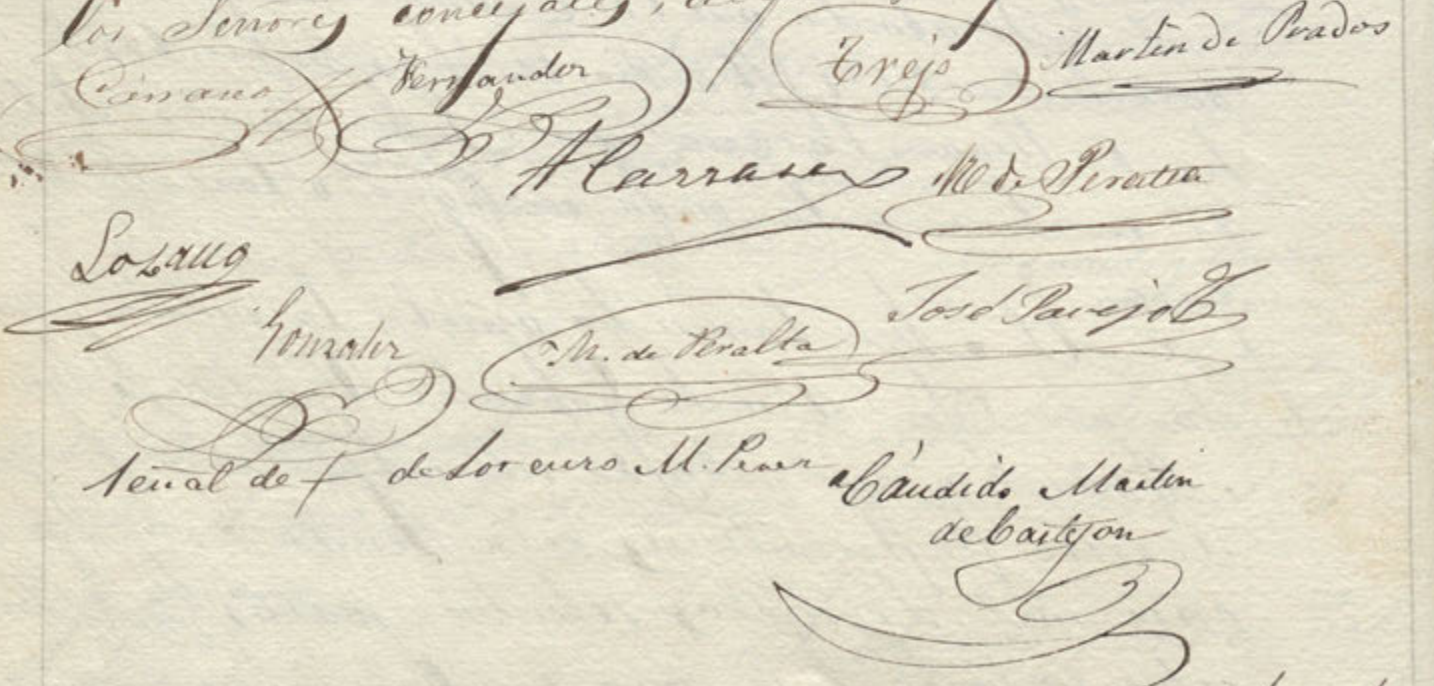 los Señores concejales,
Cirrano Fernandez Trejo Martin de Prados
A Carrasco M de Peralta
Lozano
José Pavejo
Gonzalez M. de Peralta
Señal de + de Lorenzo M. Perer
Cándido Martin
de Castejon